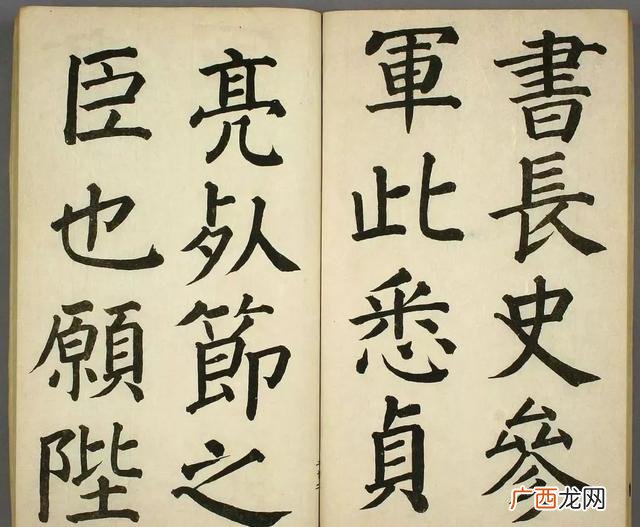 書長史參
軍此悉貞
亮死節之
臣也願陛
广西龙网